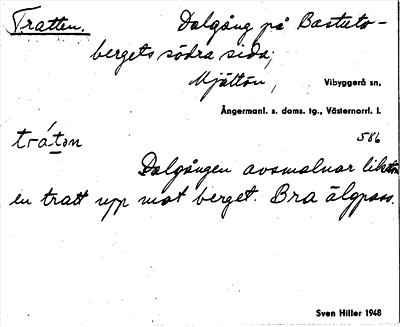 Tratten. Dalgång på Bastuto-
bergets södra sida;
Mjältön, Vibyggerå sn,
Ångermanl. s. doms. tg., Västernorrl. l.
586
trátǝn
Dalgången avsmalnar liksom
en tratt upp mot berget. Bra älgpass.
Sven Hiller 1948